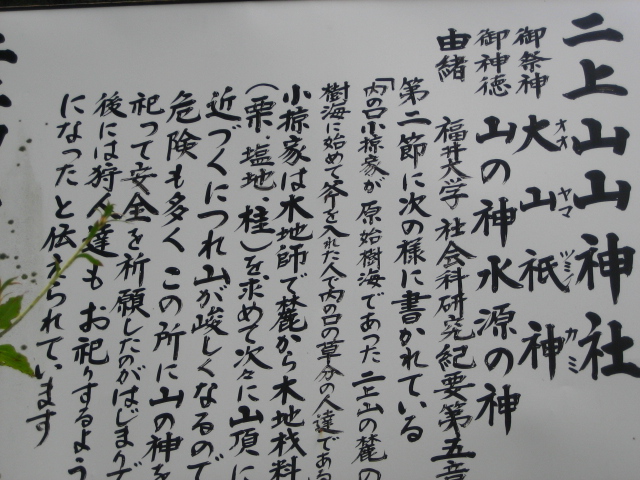 二上山山神社
御祭神 大山祇神
オオ ヤマ ツミノ カミ
御神徳 山の神水源の神
由緒 福井大学社会科研究紀要第五音
第二節に次の様に書かれている
「内の口小椋家が原始樹海であった二上山の麓の
樹海に始めて斧を入れた人で内の口の草分の人達である
小椋家は木地師で麓から木地材料
(栗、塩地、桂)を求めて次々に山頂に
近づくにつれ山が峻しくなるので
危険も多くこの所に山の神を
祀って安全を祈願したのがはじまりで
後には狩人達もお祀りするよう
になったと伝えられています